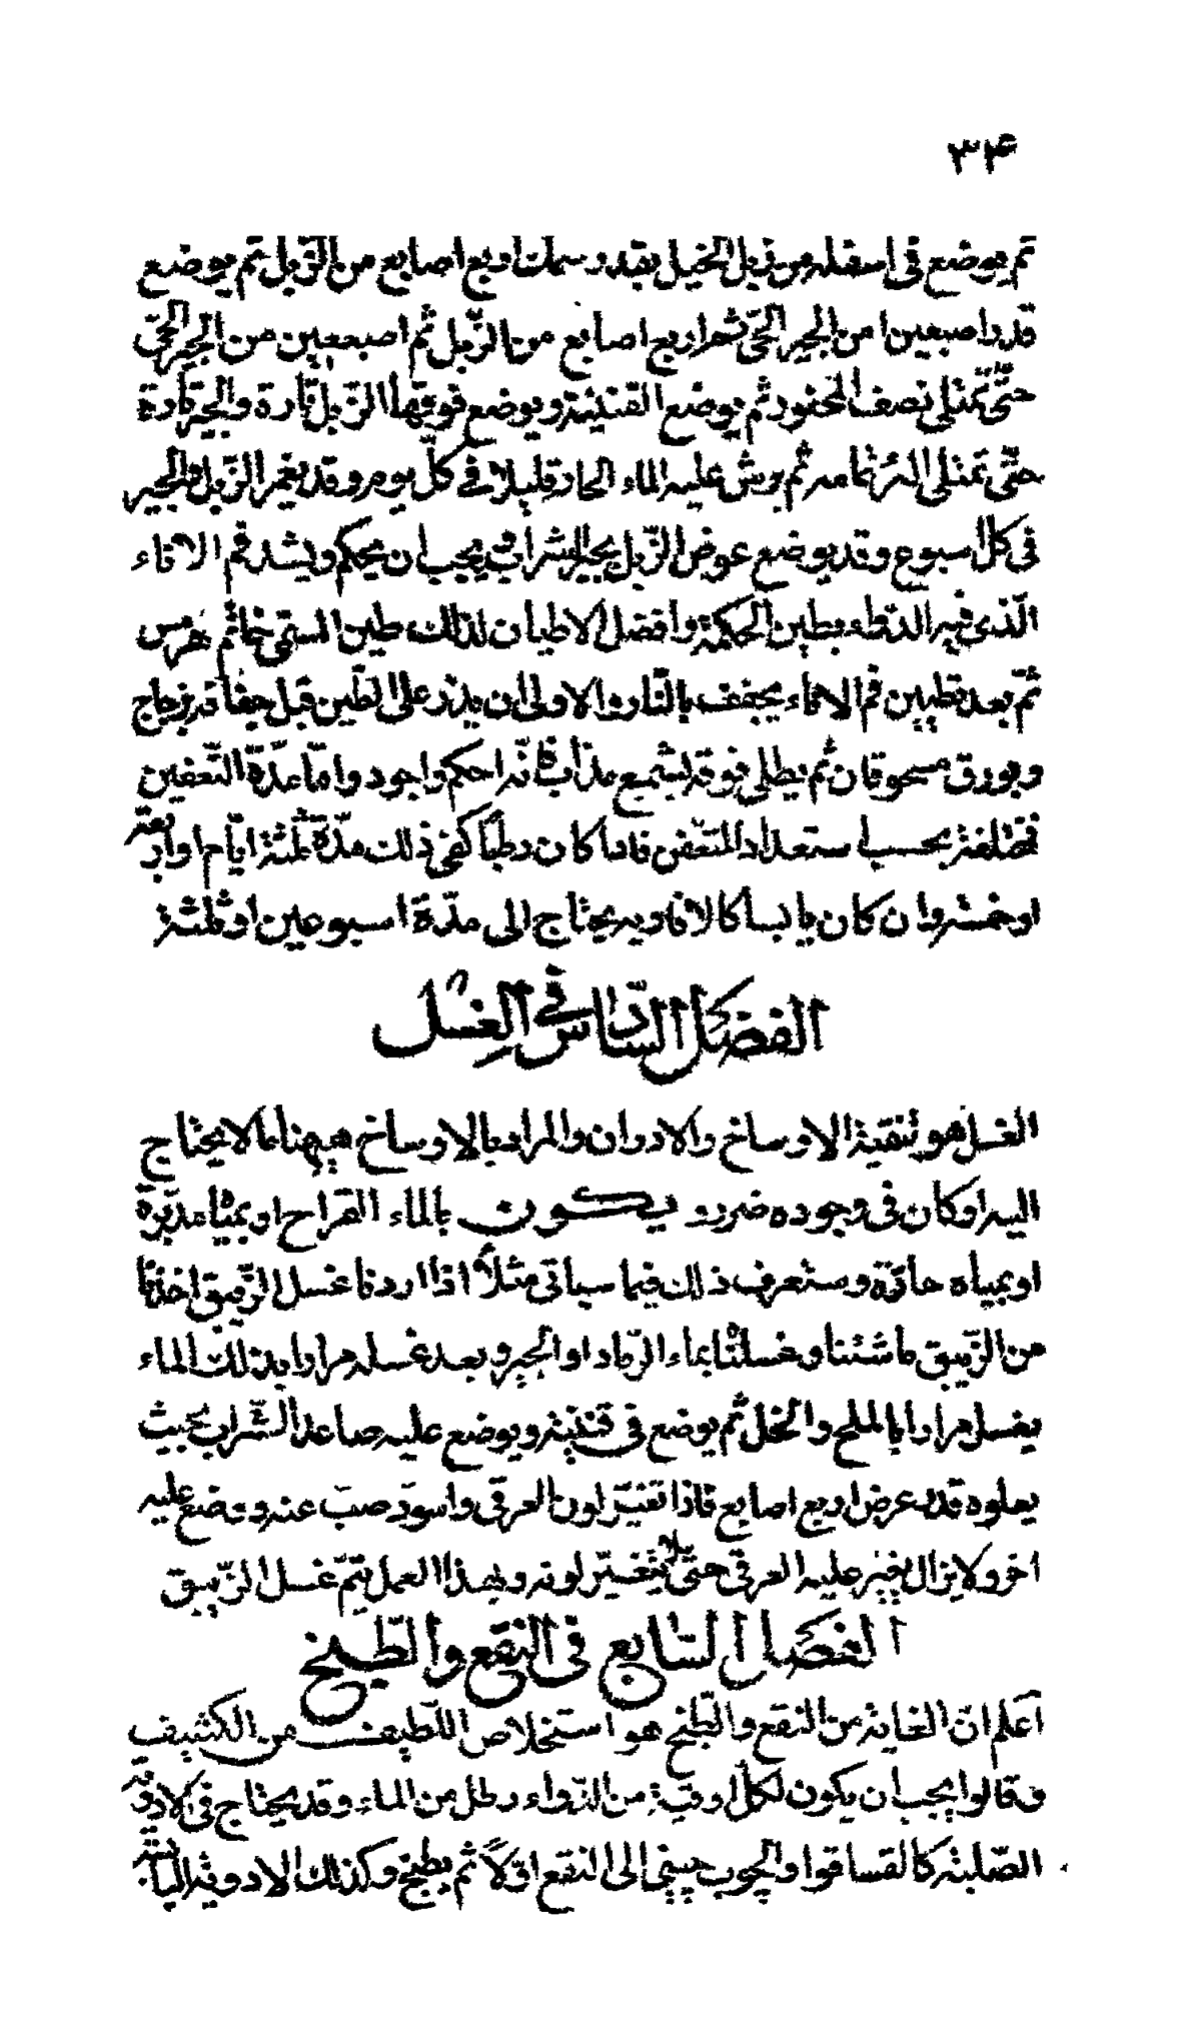 ۳۴
ثم يوضع فى اسفله من زبل الخيل بقدر سمك اربع اصابع من الزّبل ثم يوضع
قدر اصبعين من الجير الحىّ ثم اربع اصابع من الزّبل ثم اصبعين من الجير الحىّ
حتّى تمتلى نصف الحفور ثم يوضع القنينة ويوضع فوقها الزّبل تارة والجير تارة
حتّى تمتلى الى ثم يرش عليه الماء الحار قليلا فى كلّ يوم وقد يغير الزّبل والجير
فى كل اسبوع وقد يوضع عوض الزّبل يجب ان يحكم ويشد فم الاناء
الّذى فيه الدّواء بطين الحكمة وافضل الاطيان لذلك طين المسمى بخاتم هرمس
ثمّ بعد تطيين فم الاناء يجفف بالنّار والاولى ان يذر على الطّين قبل جفافه زجاج
وبورق مسحوقان ثم يطلى فوقه بشمع مذاب فانّه احكم واجود وامّا مدّة التّعفين
فمختلفة بحسب استعداد المتعفن فاذا كان رطبا كفى ذلك مدّة ثلثة ايّام او اربعة
او خمسة وان كان يابسا كالافاويه يحتاج الى مدّة اسبوعين او ثلثة
الفصل السّادس فى الغسل
الغسل هو تنقية الاوساخ والادران والمراد بالاوساخ هيهنا ما لا يحتاج
اليه او كان فى وجوده ضرر و يكون بالماء القراح او بمياه مدبرة
او بمياه حادّة وستعرف ذلك فيما سياتى مثلاً اذا اردنا غسل الزّيبق اخذنا
من الزّيبق ما شئنا وغسلنا بماء الرّماد او الجير وبعد غسله مرارا بذلك الماء
يغسل مرارا بالملح والخل ثم يوضع فى قنينة ويوضع عليه صاعد الشّراب بحيث
يعلوه قدر عرض اربع اصابع فاذا تغيّر لون العرق واسودّ صبّ عنه وتضع عليه
اخر ولا يزال يغير عليه العرق حتّى لا يتغيّر لونه وبهذا العمل يتمّ غسل الزّيبق
الفصل السّابع فى النقع والطّبخ
اعلم انّ الغاية من النقع والطّبخ هو استخلاص اللّطيف من الكثيف
وقالوا يجب ان يكون لكلّ اوقية من الدّواء رطل من الماء وقد يحتاج فى الادوية
الصّلبة كالقساقوا والجوب چينى الى النقع اوّلاً ثم يطبخ وكذلك الادوية اليابسة